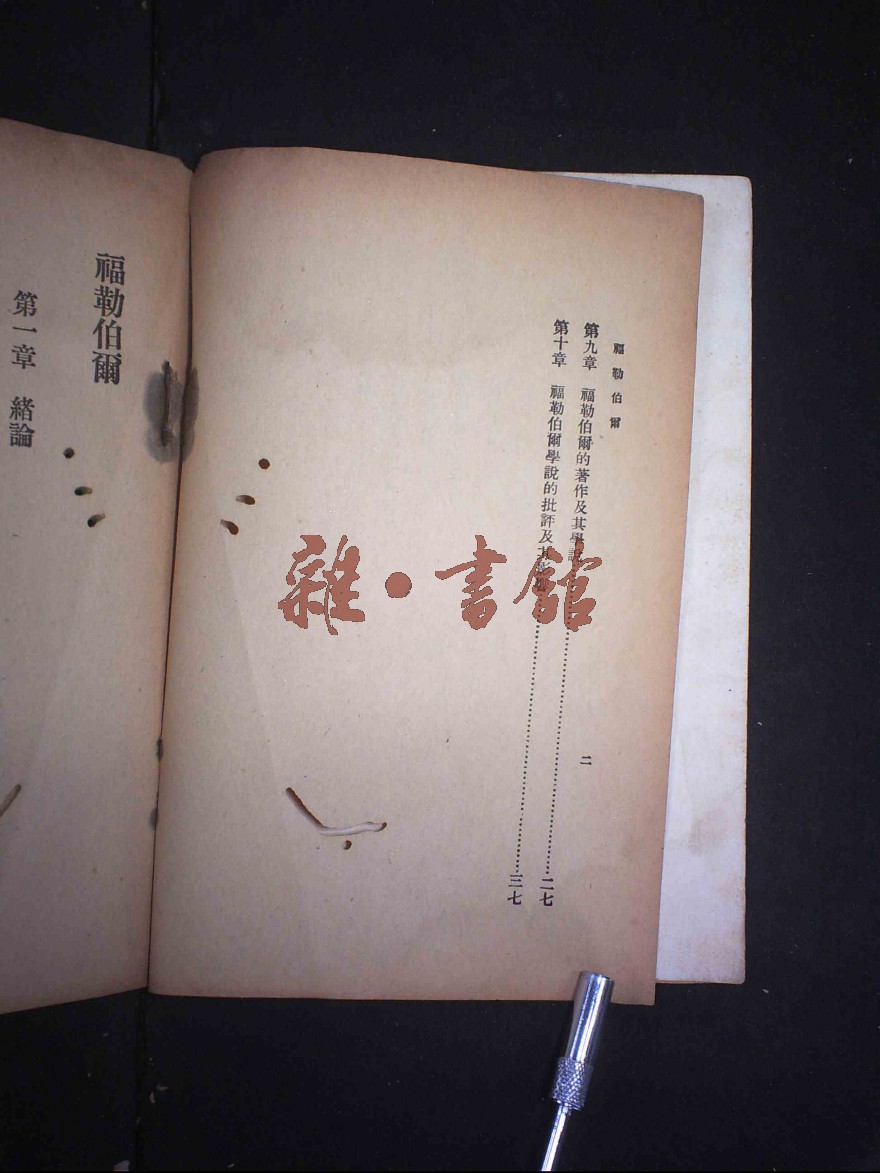 福勒伯爾
第九章　福勒伯爾的著作及其學說…………二七
第十章　福勒伯爾學說的批評及其影響…………三七
二
福勒伯爾
第一章　緒論
雜·書館